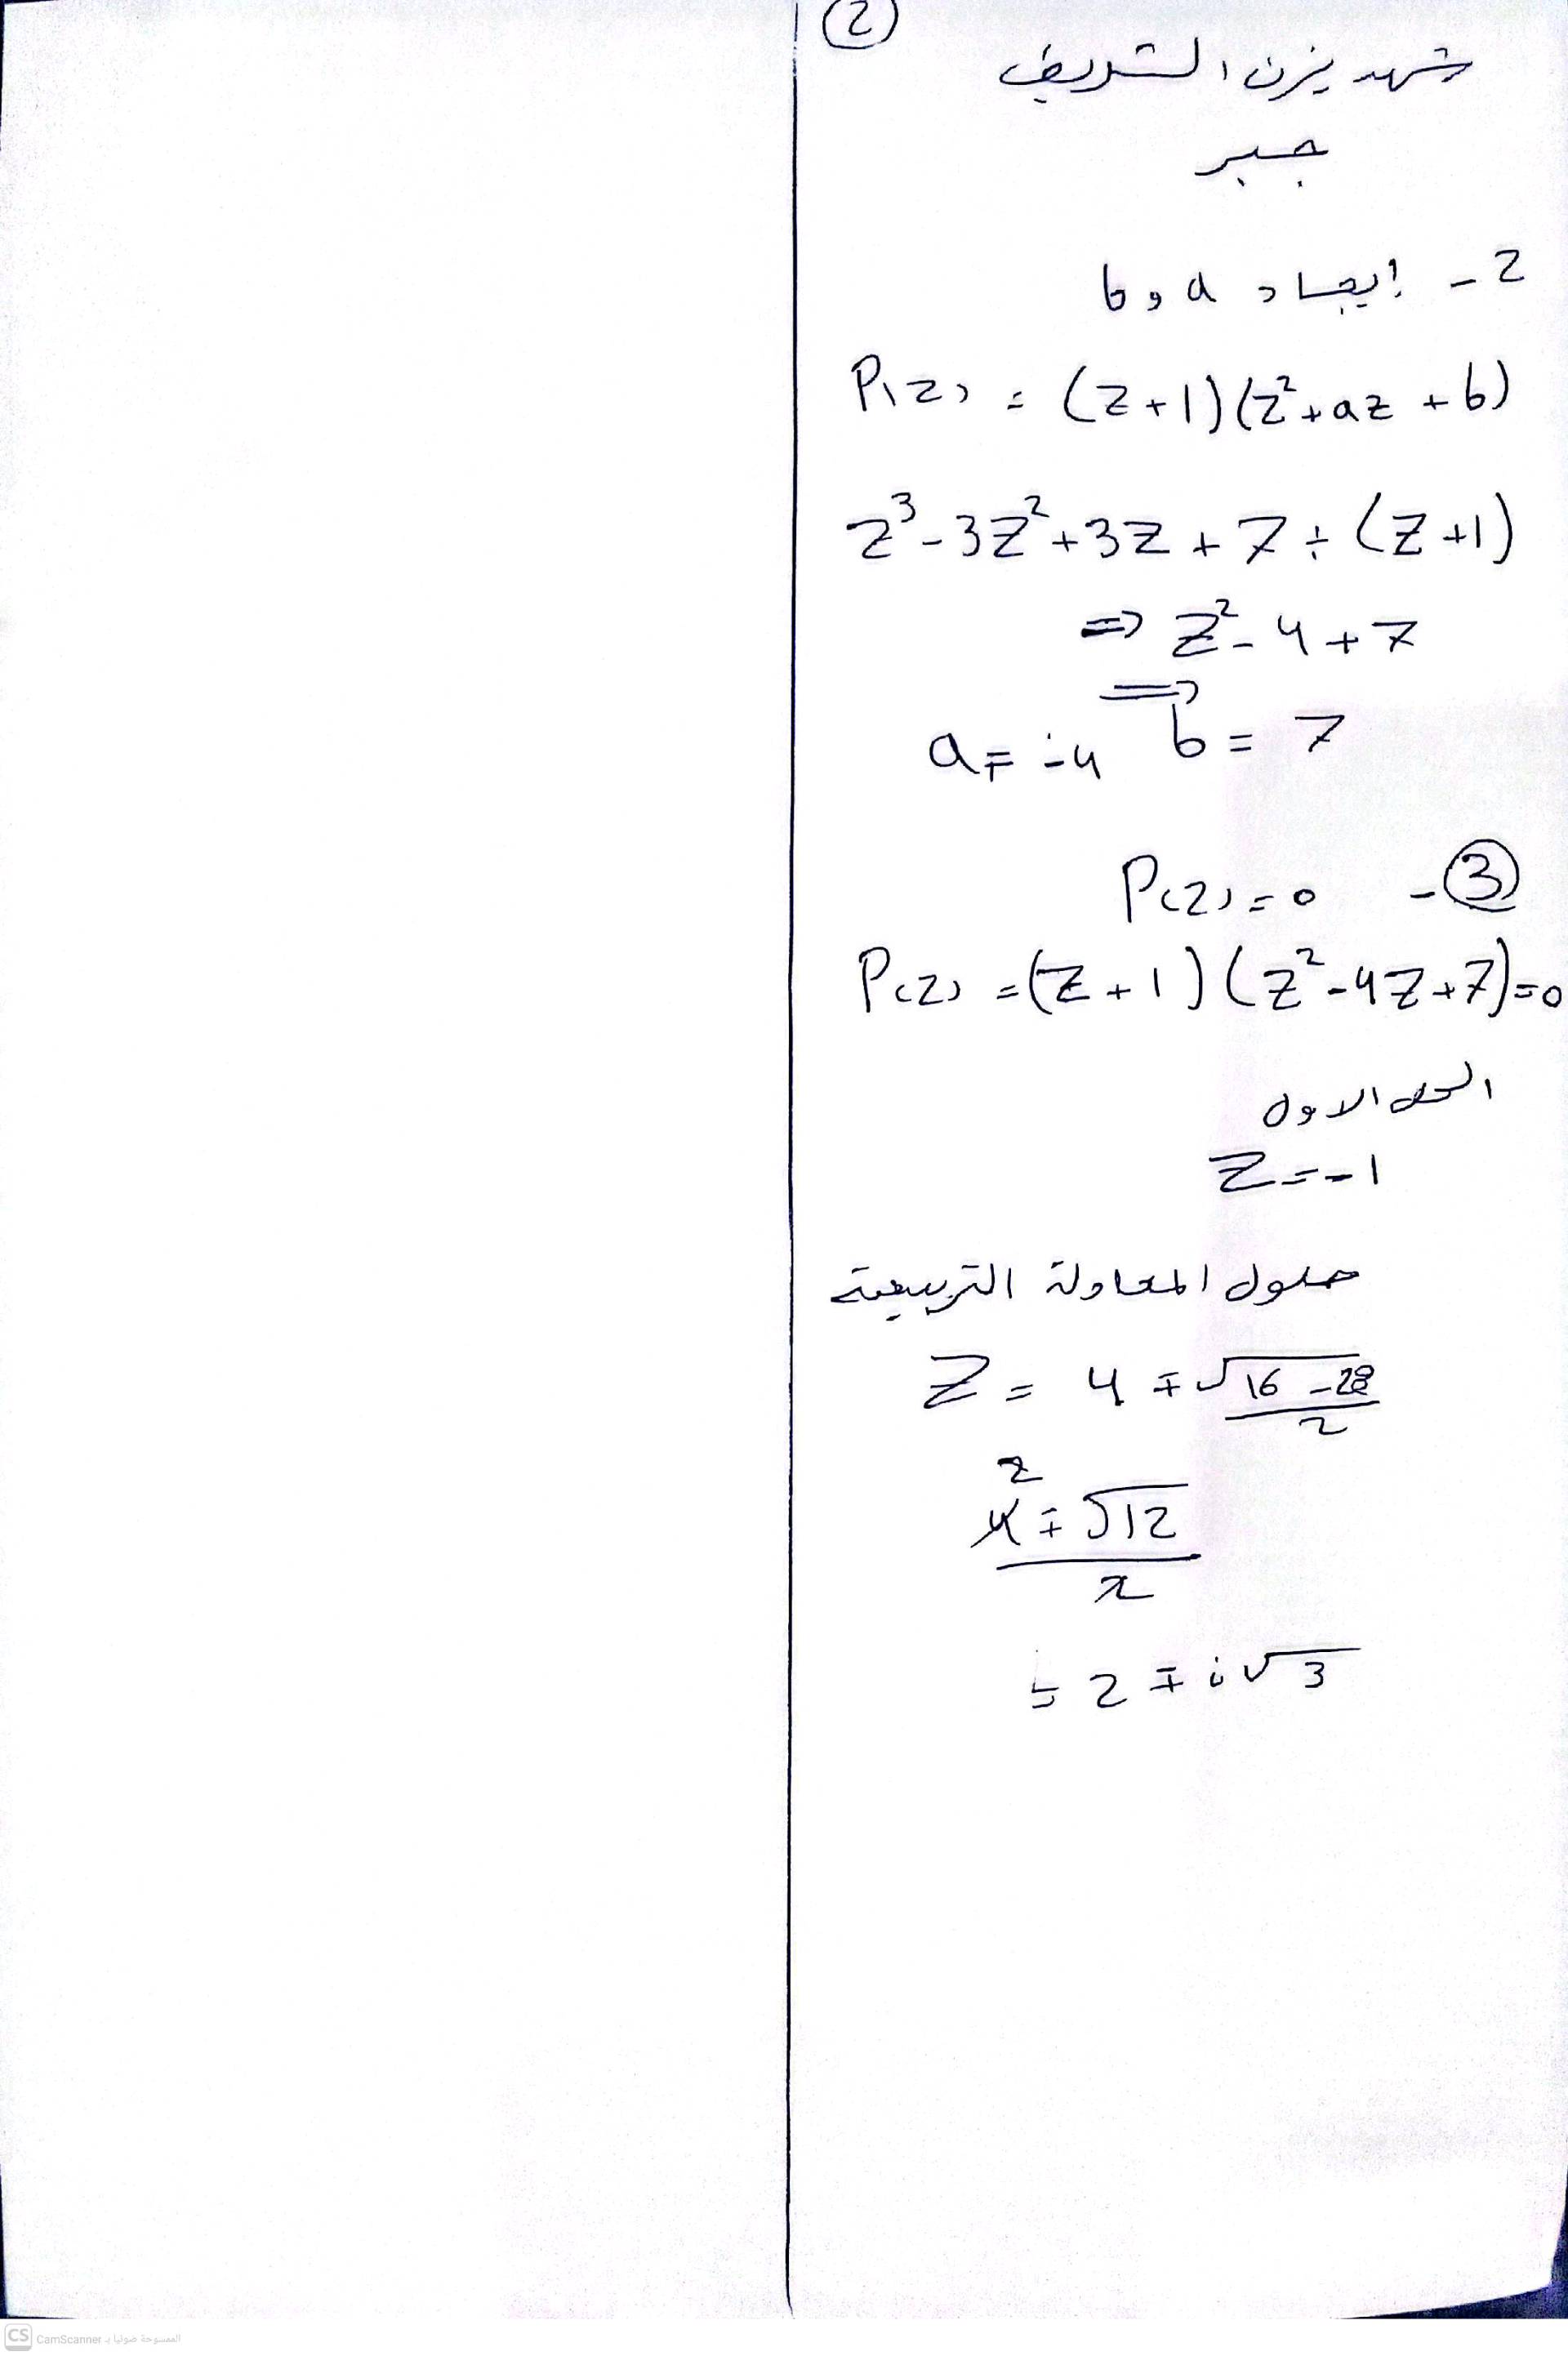 2
شهد يزن الشريف
جبر
2 - إيجاد a و b
P(z) = (z+1)(z²+az+b)
z³-3z²+3z+7÷(z+1)
⇒ z²-4+7
⇒
a = -4 b = 7
3 - P(z) = 0
P(z) = (z+1)(z²-4z+7)=0
الحل الاول
z = -1
حلول المعادلة التربيعية
z = 4 ∓ √16-28
2
2
4 ∓ √12
2
= 2 ∓ i√3
CS CamScanner الممسوحة ضوئيا بـ